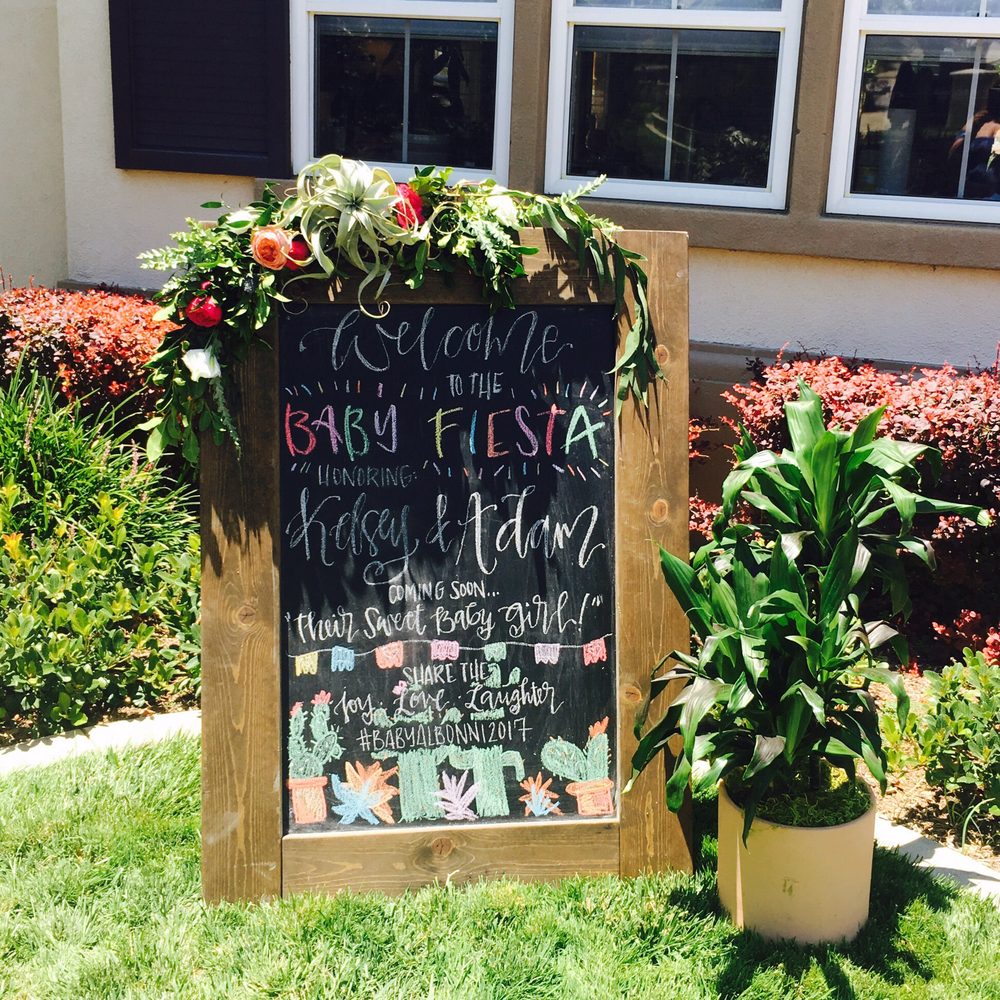 Welcome
TO THE
BABY FIESTA
HONORING:
Kelsey & Adam
COMING SOON...
"Their Sweet Baby Girl!"
SHARE THE
Joy. Love. Laughter
#BABYALBONNI2017